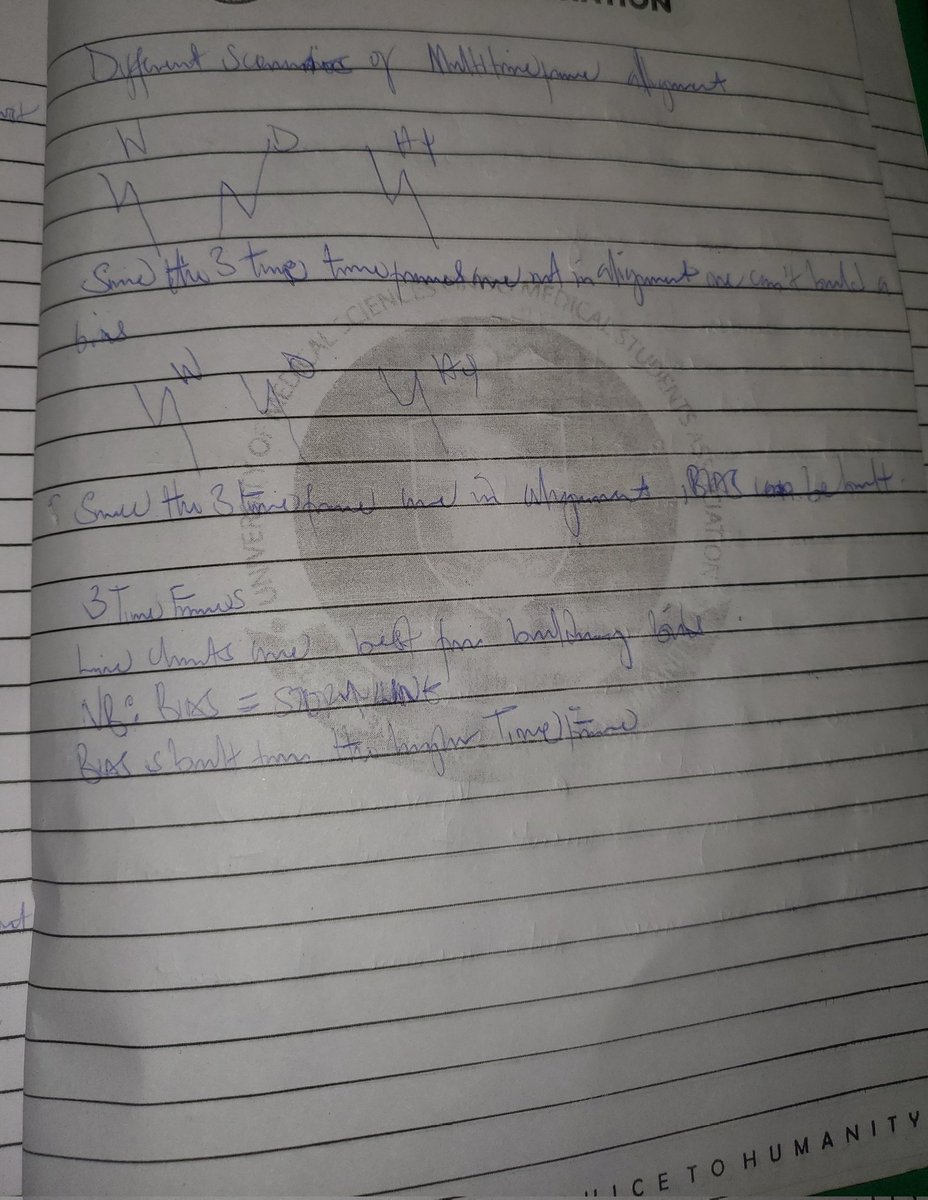 Different Scenarios of Multitimeframe alignment
W D H4
Since the 3 times timeframes are not in alignment one can't build a
bias
W D H4
Since the 3 timeframe are in alignment, BIAS can be built.
3 Time Frames
Line Charts are best for building bias
NB: BIAS =
BIAS is built from the higher Time Frame
UNIVERSITY OF MEDICAL SCIENCES MEDICAL STUDENTS ASSOCIATION
ICE TO HUMANITY